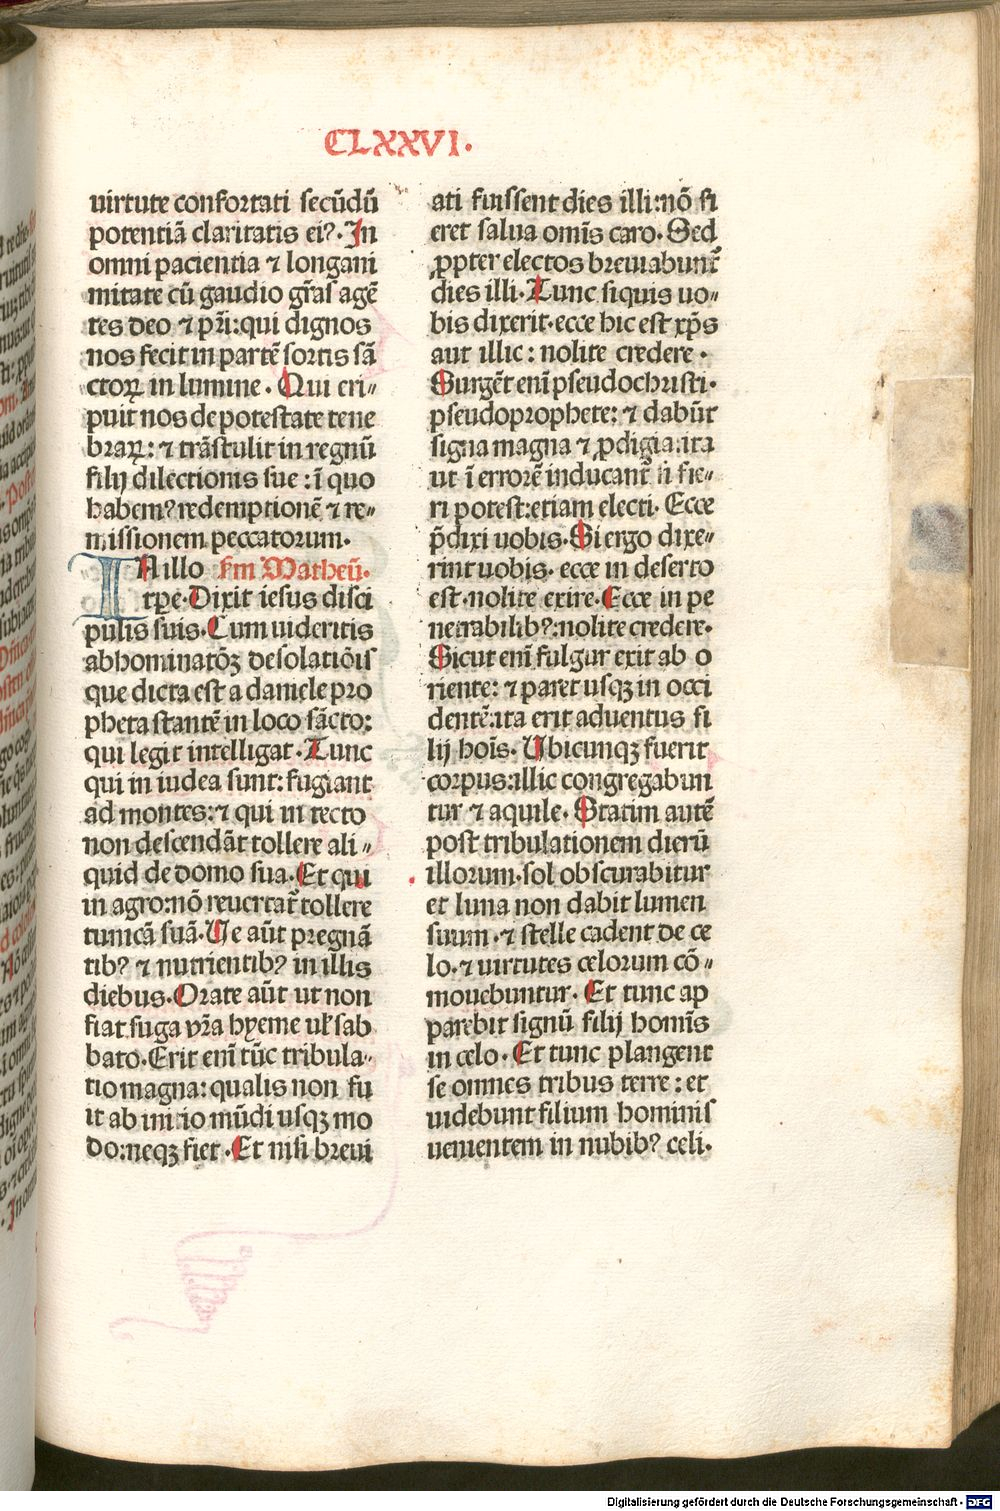 CLXXVI.
uirtute confortati secūdū
potentiā claritatis eiꝰ. In
omni pacientia ⁊ longani
mitate cū gaudio gr̄as agē
tes deo ⁊ pr̄i: qui dignos
nos fecit in partē sortis sā
ctoꝝ in lumine. Qui eri⸗
puit nos de potestate tene
braꝝ: ⁊ trāstulit in regnū
filij dilectionis sue: ī quo
habemꝰ redemptionē ⁊ re⸗
missionem peccatorum.
IN illo Sm Matheū.
tꝑe. Dixit iesus disci
pulis suis. Cum uideritis
abhominatōꝫ desolatiōis
que dicta est a daniele pro
pheta stantē in loco sācto:
qui legit intelligat. Tunc
qui in iudea sunt: fugiant
ad montes: ⁊ qui in tecto
non descendāt tollere ali⸗
quid de domo sua. Et qui
in agro: nō reuertat᷑ tollere
tunicā suā. Ue aūt pregnā
tibꝰ ⁊ nutrientibꝰ in illis
diebus. Orate aūt ut non
fiat fuga vr̄a hyeme uł sab
bato. Erit enī tūc tribula⸗
tio magna: qualis non fu
it ab initio mūdi usqꝫ mo
do: neqꝫ fiet. Et nisi breui
ati fuissent dies illi: nō fi
eret salua omīs caro. Sed
ꝓpter electos breuiabunt᷑
dies illi. Tunc si quis uo⸗
bis dixerit. ecce hic est xp̄s
aut illic: nolite credere.
Surgēt enī pseudochristi.
pseudoprophete: ⁊ dabūt
signa magna ⁊ ꝓdigia: ita
ut ī errorē inducant᷑ si fie⸗
ri potest: etiam electi. Ecce
p̄dixi uobis. Si ergo dixe⸗
rint uobis. ecce in deserto
est. nolite exire. Ecce in pe
netrabilibꝰ: nolite credere.
Sicut enī fulgur exit ab o
riente: ⁊ paret usqꝫ in occi
dentē: ita erit aduentus fi
lij hoīs. Ubicunqꝫ fuerit
corpus: illic congregabun
tur ⁊ aquile. Statim autē
post tribulationem dierū
illorum. sol obscurabitur
et luna non dabit lumen
suum. ⁊ stelle cadent de ce
lo. ⁊ uirtutes celorum cō⸗
mouebuntur. Et tunc ap
parebit signū filij homīs
in celo. Et tunc plangent
se omnes tribus terre: et
uidebunt filium hominis
uenientem in nubibꝰ celi.
Digitalisierung gefördert durch die Deutsche Forschungsgemeinschaft - DFG